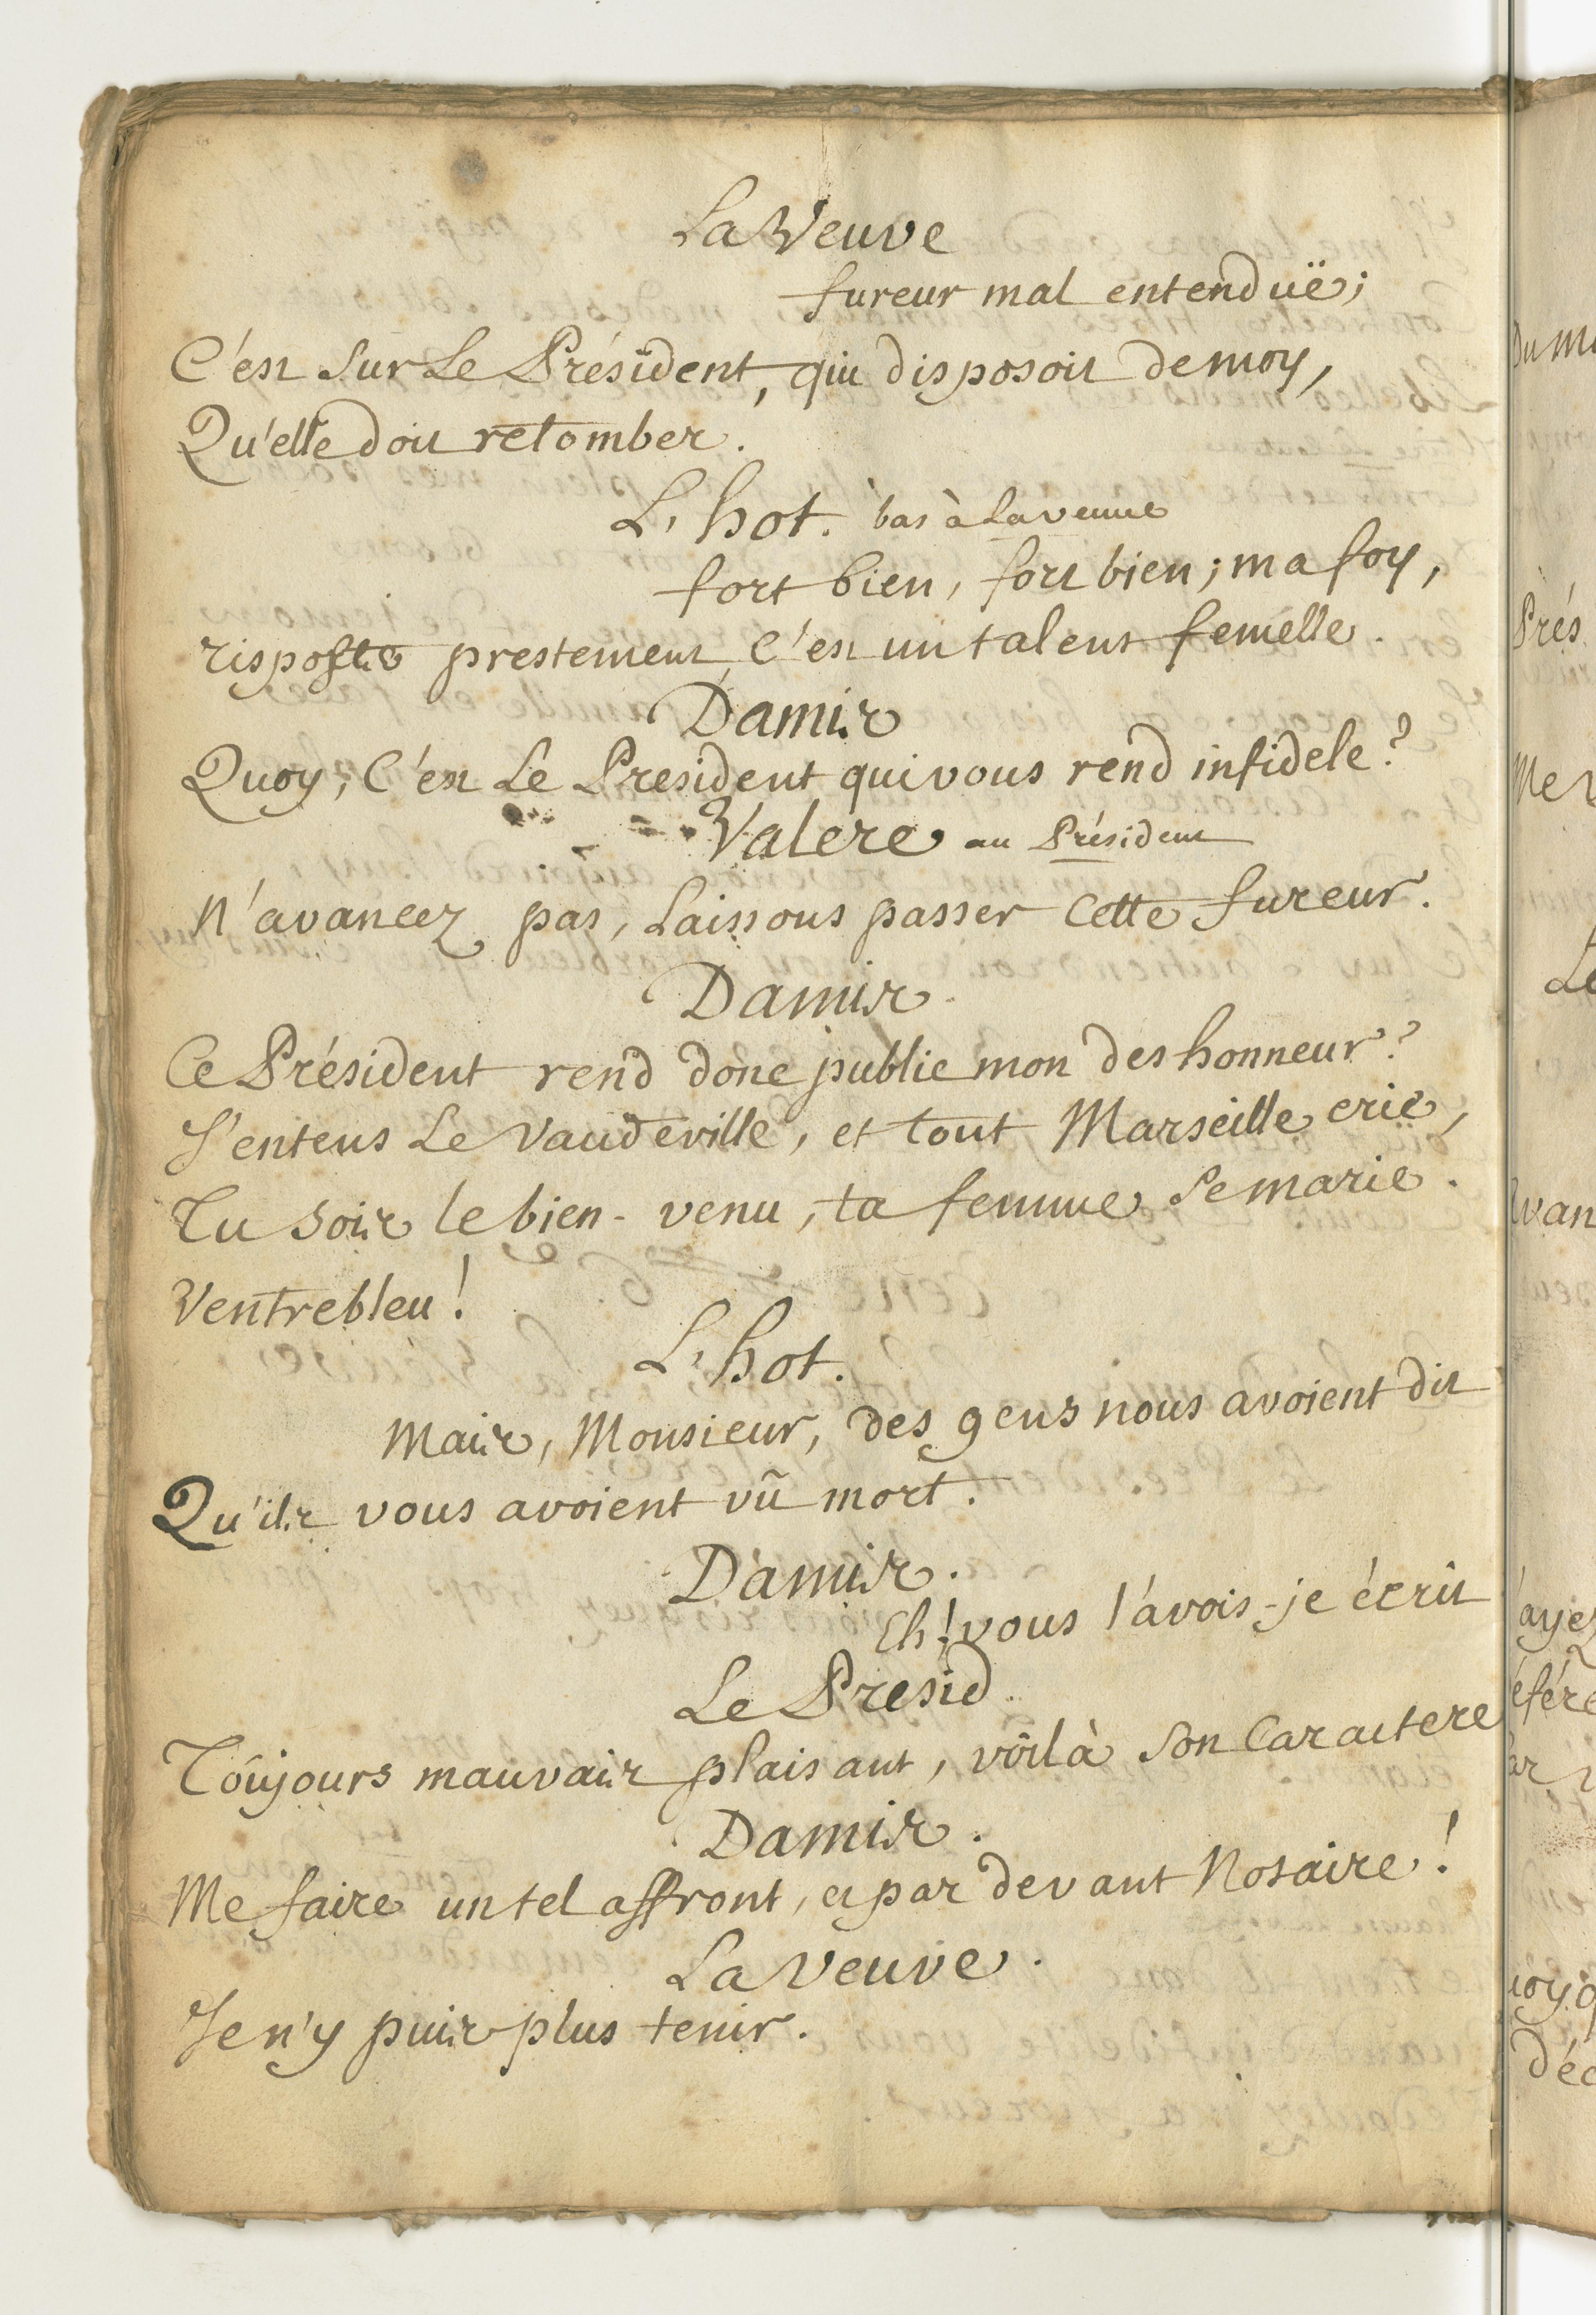 La Veuve
fureur mal entenduë;
C'est sur Le Président, qui disposoit de moy,
Qu'elle doit retomber.
L'hot. bas à La veuve
fort bien, fort bien; ma foy,
risposte prestement, C'est un talent femelle.
Damis
Quoy, C'est Le President qui vous rend infidele?
Valere au Président
N'avancez pas, Laissons passer Cette fureur.
Damis
Ce Président rend donc public mon deshonneur?
J'entens Le Vaudeville, et tout Marseille crie,
Tu sois le bien-venu, ta femme se marie.
Ventrebleu!
L'hot.
Mais, Monsieur, des gens nous avoient dit
Qu'ils vous avoient vû mort.
Damis.
Eh! vous l'avois-je écrit
Le Presid.
Toûjours mauvais plaisant, voilà son Caractere
Damis.
Me faire un tel affront, et par devant Notaire!
La Veuve.
Je n'y puis plus tenir.